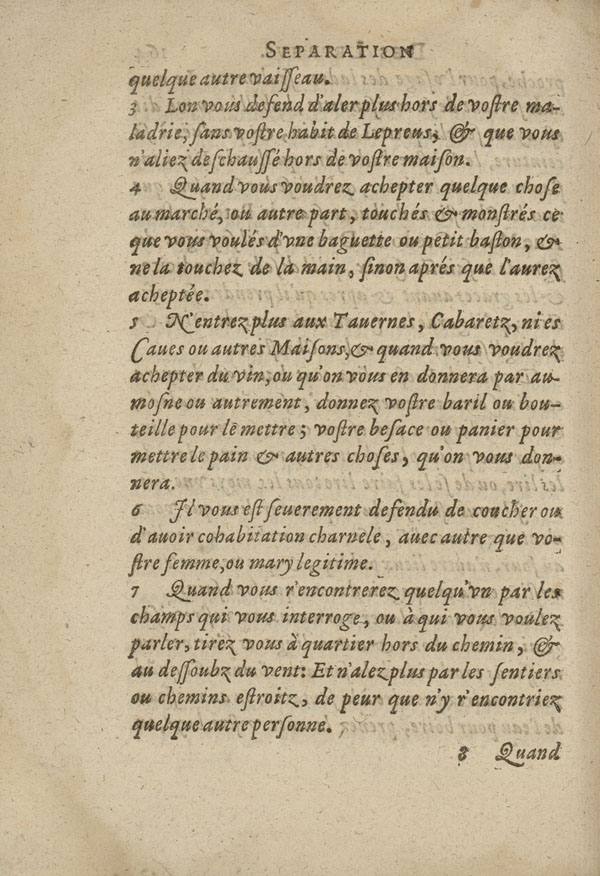 SEPARATION
quelque autre vaisseau.
3 Lon vous defend d'aler plus hors de vostre ma-
ladrie, sans vostre habit de Lepreus, & que vous
n'aliez deschaussé hors de vostre maison.
4 Quand vous voudrez achepter quelque chose
au marché, ou autre part, touchés & monstrés ce
que vous voulés d'vne baguette ou petit baston, &
ne la touchez de la main, sinon aprés que l'aurez
acheptée.
5 N'entrez plus aux Tauernes, Cabaretz, ni es
Caues ou autres Maisons, & quand vous voudrez
achepter du vin, ou qu'on vous en donnera par au-
mosne ou autrement, donnez vostre baril ou bou-
teille pour lē mettre; vostre besace ou panier pour
mettre le pain & autres choses, qu'on vous don-
nera.
6 Il vous est seuerement defendu de coucher ou
d'auoir cohabitation charnele, auec autre que vo-
stre femme, ou mary legitime.
7 Quand vous r'encontrerez quelqu'vn par les
champs qui vous interroge, ou à qui vous voulez
parler, tirez vous à quartier hors du chemin, &
au dessoubz du vent: Et n'alez plus par les sentiers
ou chemins estroitz, de peur que n'y r'encontriez
quelque autre personne.
8 Quand